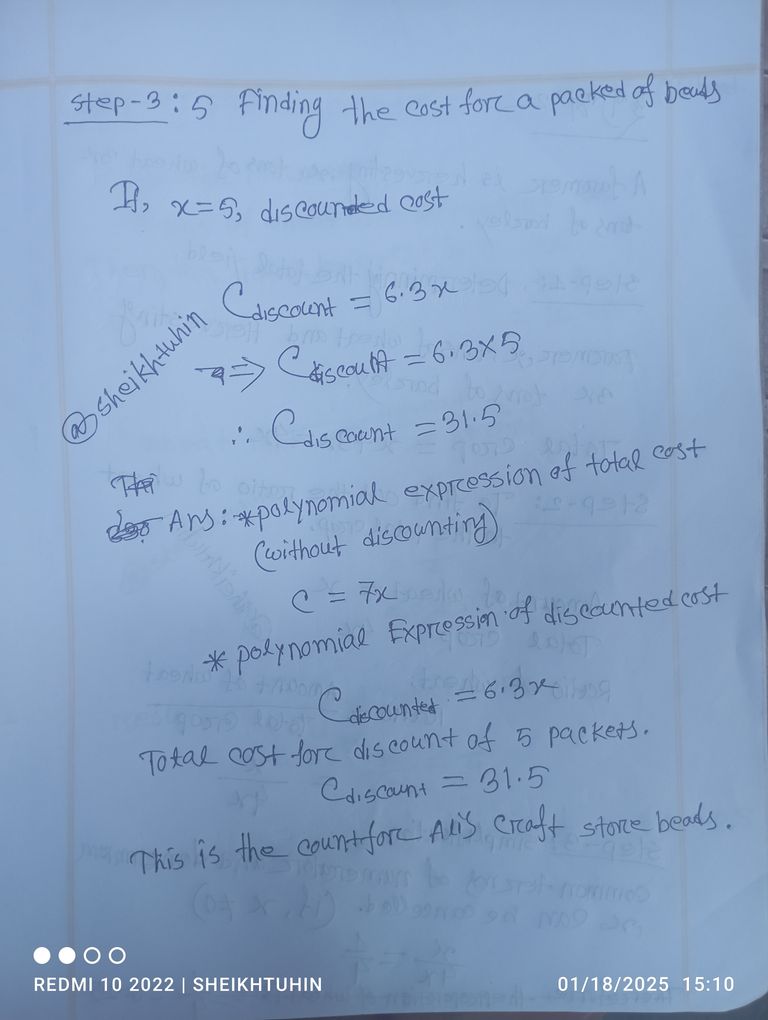 Step-3: 5 Finding the cost forc a packed of beads
If, x=5, discounded cost
C discount = 6.3x
=> C discount = 6.3×5
∴ C discount = 31.5
@sheikhtuhin
Ans: *polynomial expression of total cost
(without discounting)
c = 7x
* polynomial Expression of discounted cost
C discounted = 6.3x
Total cost forc discount of 5 packets.
C discount = 31.5
This is the count forc Ali's Craft store beads.
REDMI 10 2022 | SHEIKHTUHIN
01/18/2025 15:10